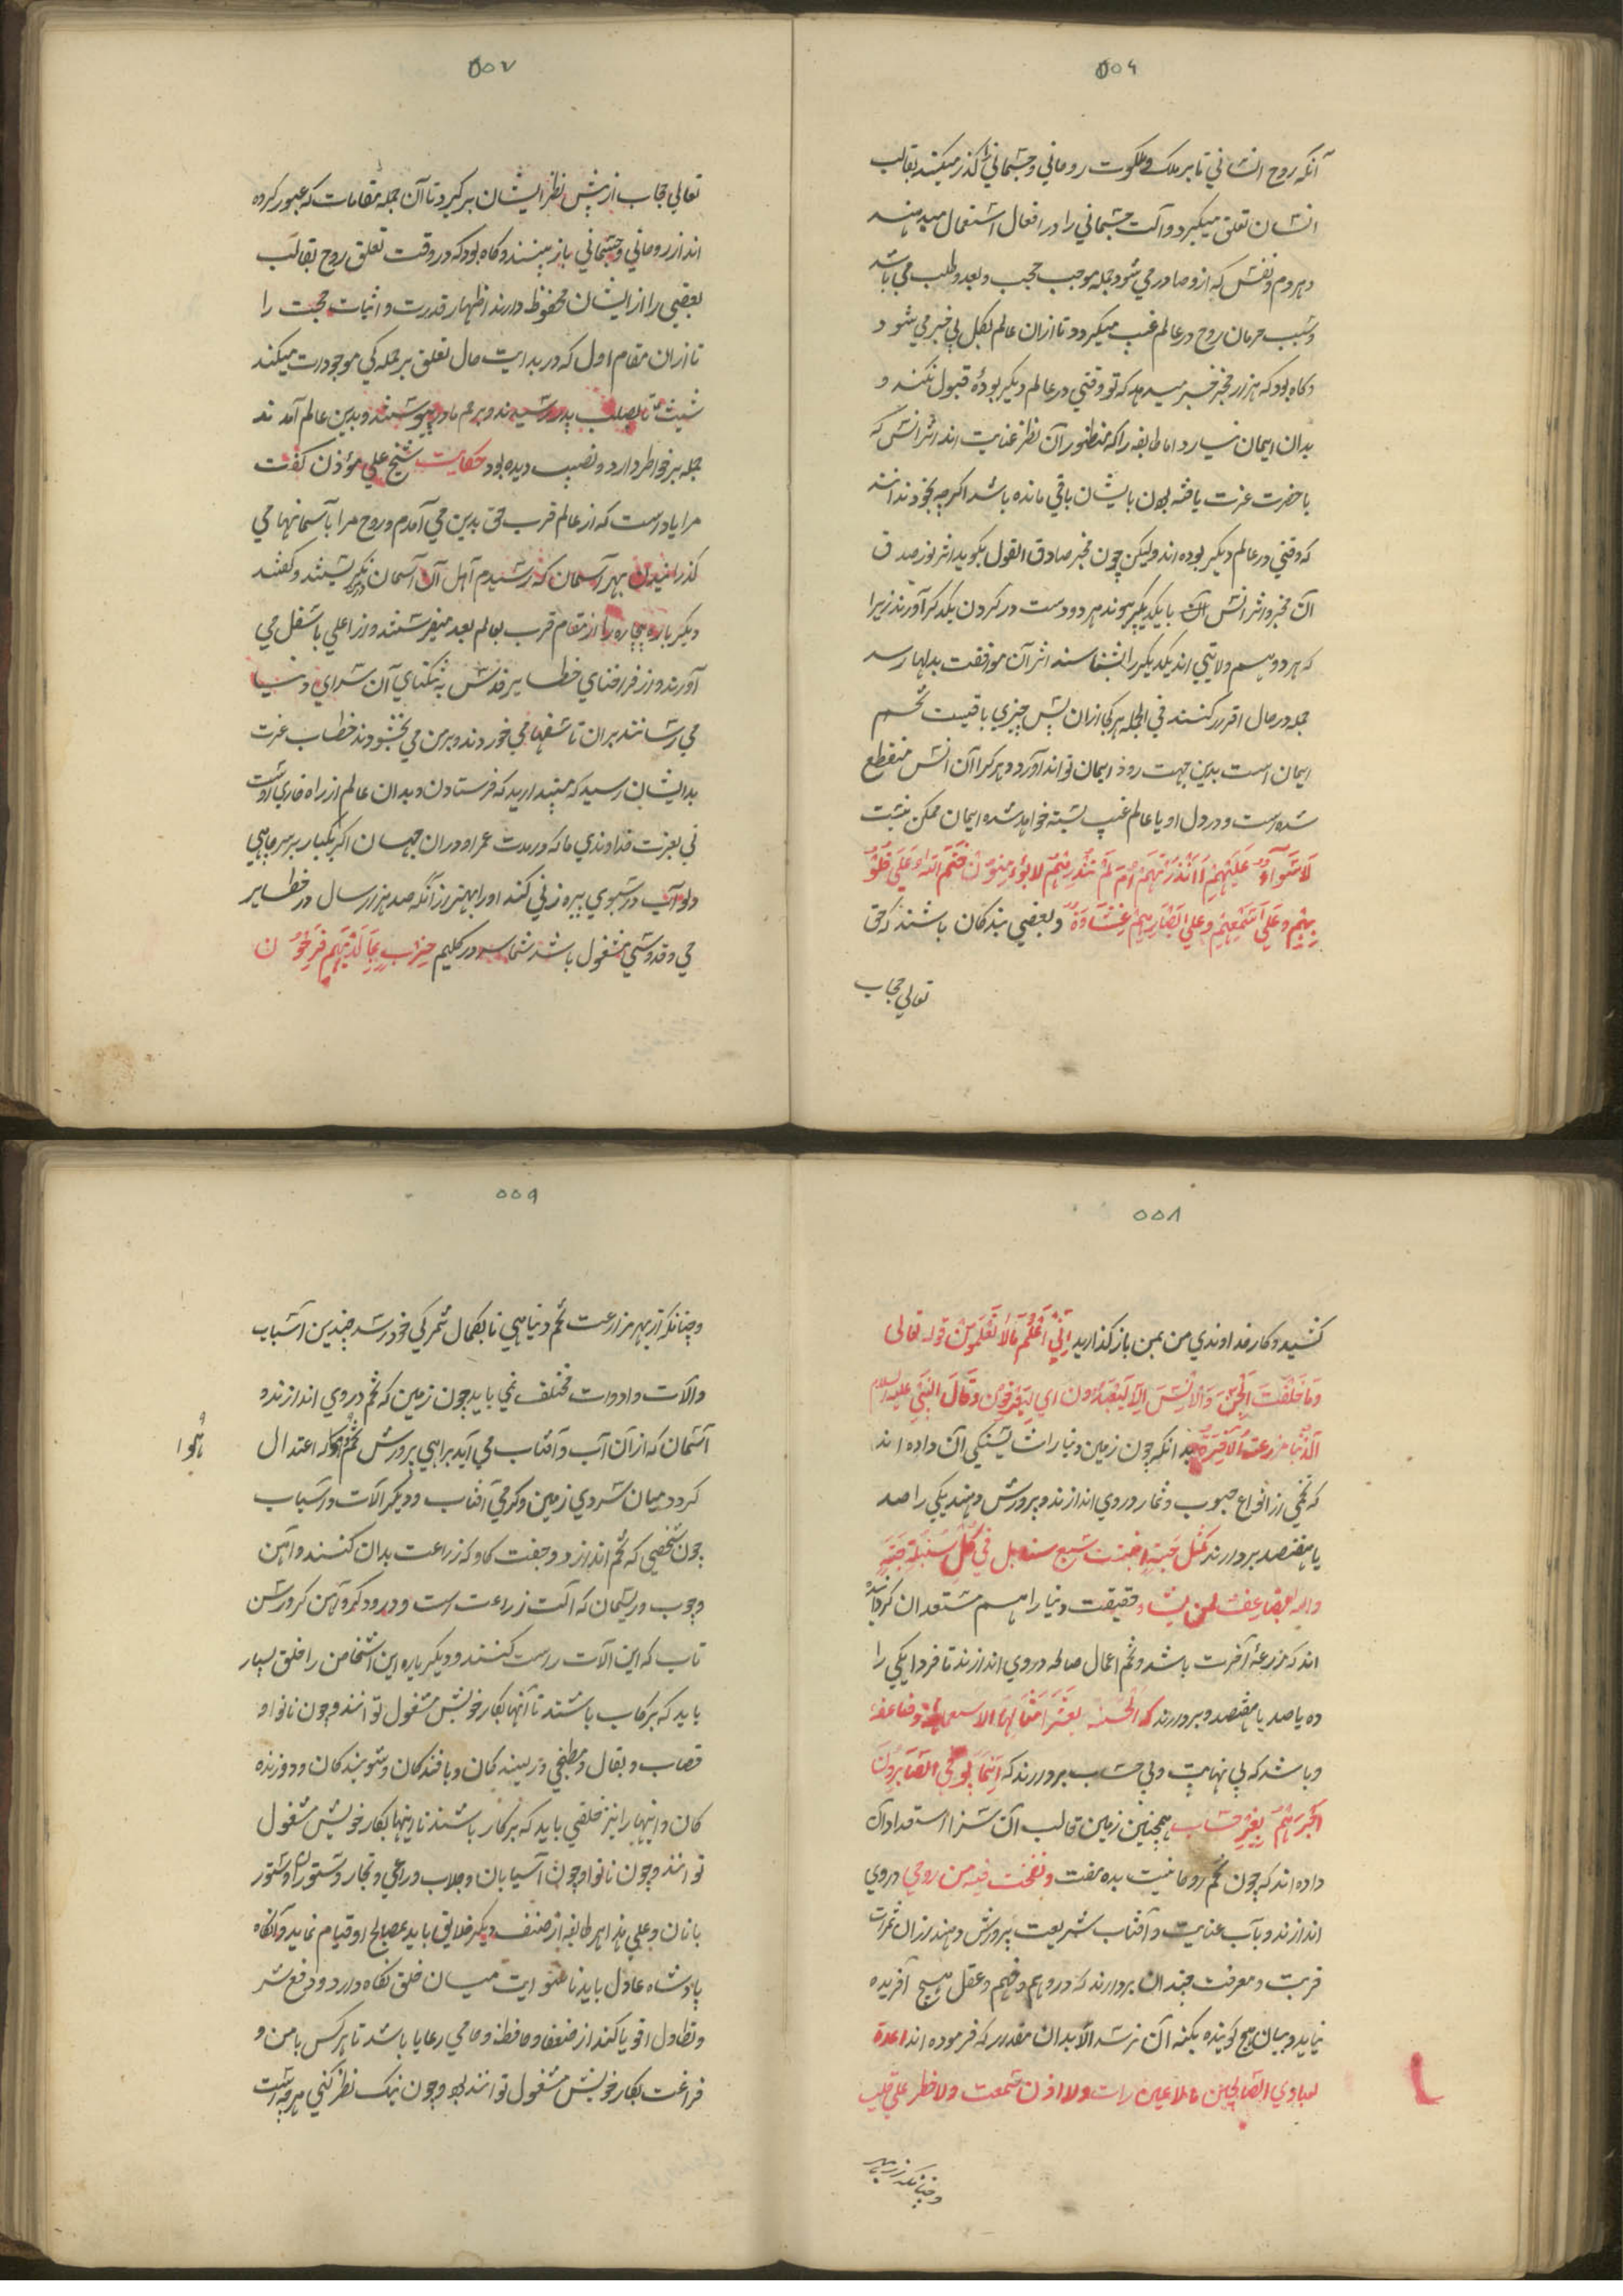 ٥٥٦
آنکه روح انسانی تا بر ملک و ملکوت روحانی و جسمانی گذر میکند بقالب
انسان تعلق میکیرد و آلت جسمانی را در افعال استعمال میدهند
و هر دم و نفس که از و صادر می شود جمله موجب حجب و بعد و طلب می باشد
و سبب حرمان روح در عالم غیب میکردد تا از ان عالم بکل بی خبر می شود
و کاه بود که هزار مخبر خبر میدهد که تو وقتی در عالم دیکر بودهٔ قبول نکند و
بدان ایمان نیارد اما طایفه را که منظور آن نظر عنایت اند اثر انس که
با حضرت عزت یافته بودن بایشان باقی مانده باشد اکرچه بخود نداند
که وقتی در عالم دیکر بوده اند ولیکن چون مخبر صادق القول بکوید اثر نور صدق
آن مخبر و اثر انس آن با یکدیکر پیوند هر دو دست در کردن یکدکر آورند زیرا
که هر دو هم ولایتی اند یکدیکر را بشناسند اثر آن موافقت بدلها رسد
جمله در حال اقرار کنند فی الجمله هر کجا از ان پس چیزی باقیست تخم
ایمان است بدین جهت زود ایمان تواند آورد و هر کرا آن انس منقطع
شده است و در دل او با عالم غیب بسته خواهد شده ایمان ممکن نیست
لا سَوَآءٌ عَلَیْهِمْ أَأَنْذَرْتَهُمْ اَمْ لَمْ تُنْذِرْهُمْ لا یُؤْمِنُوْنَ خَتَمَ اللهُ عَلَی قُلُوْ
بِهِمْ وَعَلَی سَمْعِهِمْ وعلی اَبْصَارِهِمْ غِشَاوَةٌ و بعضی بندکان باشند که حق
تعالی حجاب
٥٥٧
تعالی حجاب از پیش نظر ایشان بر کیرد تا آن جمله مقامات که عبور کرده
اند از روحانی و جسمانی باز بینند و کاه بود که در وقت تعلق روح بقالب
بعضی را از ایشان محفوظ دارند اظهار قدرت و اثبات حجت را
تا از ان مقام اول که در بدایت حال تعلق بر جمله کی موجودات میکند
شیث تا بصلب پدر رسیدند و برحم مادر پیوستند و بدین عالم آمدند
جمله بر خواطر دارد و نصیب دیده بود حکایت شیخ علی مؤذن کفت
مرا یاد است که از عالم قرب حق بدین می آمدم و روح مرا بآسمانها می
کذرانیدن بهر آسمان که رسیدم اهل آن آسمان بر من بکریستند و کفتند
دیکر باره بیچاره را از مقام قرب بعالم بعد میفرستند و از اعلی باسفل می
آورند و از فراخنای خطایر قدس به تنکنای آن سرای دنیا
می رسانند بران تاسفها می خوردند و بر من می بخشودند خطاب عزت
بدایشان رسید که مپندارید که فرستادن وبدان عالم از راه خاری اوست
نی بعزت خداوندی ما که در مدت عمر او در ان جهان اکر یکبار بر سر چاهی
دلو آب در سبوی بیره زنی کند او را بهتر از آنکه صد هزار سال در خطایر
حی و قدوسی مشغول باشد شما سر در کلیم حِزْبٍ بِمَا لَدَیْهِمْ فَرِحُوْن
٥٥٨
کشید و کار خداوندی من بمن باز کذارید اِنِّیْ اَعْلَمُ مَالَا تَعْلَمُوْنَ قوله تعالی
وَمَا خَلَقْتُ الْجِنَّ وَالْاِنْسَ اِلَّا لِیَعْبُدُوْن ای لِیَعْرِفُوْن وَقَالَ النَّبِیُّ علیه السلام
اَلدُّنْیَا مزرعة الآخِرَة بد انکه چون زمین دنیا را شایستکی آن داده اند
که تخمی از انواع حبوب و ثمار در وی اندازند و پرورش دهند یکی را صد
یا هفتصد بردارند کَمَثَلِ حَبَّةٍ اَنْبَتَتْ سَبْعَ سنابل فی کُلِّ سُنْبُلَةٍ مِائَةُ حَبَّةٍ
والله یضاعف لمن یشاء حقیقت دنیا را هم مستعد ان کردانیده
اند که مزرعهٔ آخرت باشد و تخم اعمال صالحه در وی اندازند تا فردا یکی را
ده یا صد یا هفتصد و بردارند که الحسنه بعشر امثالها الا سبعمایة وضاعفه
و باشد که بی نهایت و بی حساب بردارند که اِنَّمَا یُوَفَّی الصَّابِرُوْنَ
اَجْرَهُمْ بِغَیْرِ حِسَاب همچنین زمین قالب انسانرا استعداد آن
داده اند که چون تخم روحانیت بده صفت وَنَفَخْتُ فِیْه من روحی در وی
اندازند و بآب عنایت و آفتاب شریعت پرورش دهند از ان ثمرات
قربت و معرفت چندان بردارند که در وهم و فهم و عقل هیچ آفریده
نیاید و بیان هیچ کوینده بکنه آن نرسد الا بدان مقدار که فرموده اند اعدت
لعبادی الصالحین مالاعین رات ولا اذن سمعت ولا خطر علی قلب
و چنانکه از بهر
٥٥٩
و چنانکه از بهر مزارعت تخم دنیاهی تا بکمال ثمرکی خود رسد چندین اسباب
و آلات و ادوات مختلف می باید چون زمین که تخم در وی اندازند و
آسمان که از ان آب و آفتاب می آید براهی پرورش تخم و هوا که اعتدال
هوا
کردد میان سردی زمین و کرمی آفتاب و دیکر آلات و اسباب
چون شخصی که تخم اندازد و جفت کاو که زراعت بدان کنند و آهن
و چوب و ریسمان که آلت زراعت است و درودکر و آهن کر و رسن
تاب که این آلات راست کنند و دیکر باره این اشخاص را خلق بسیار
باید که بر کاب باشند تا آنها بکار خویش مشغول توانند و چون نانوا و
قصاب و بقال و مطبخی و ریسنده کان و بافندکان و شویندکان و دوزنده
کان و اینها را نیز خلقی باید که بر کار باشند تا اینها بکار خویش مشغول
توانند و چون نانوا و چون آسیابان و جلاب و راعی و تجار و ستوران و ستور
بانان و علی هذا هر طایفه از صنف دیکر خلایق باید بمصالح او قیام نماید و آنکاه
پادشاه عادل باید تا سویت میان خلق نکاه دارد و دفع شر
و تطاول اقویا کند از ضعفا و حافظ و حامی رعایا باشد تا هر کس بامن و
فراغت بکار خویش مشغول توانند بود و چون نیک نظر کنی هرچه هست